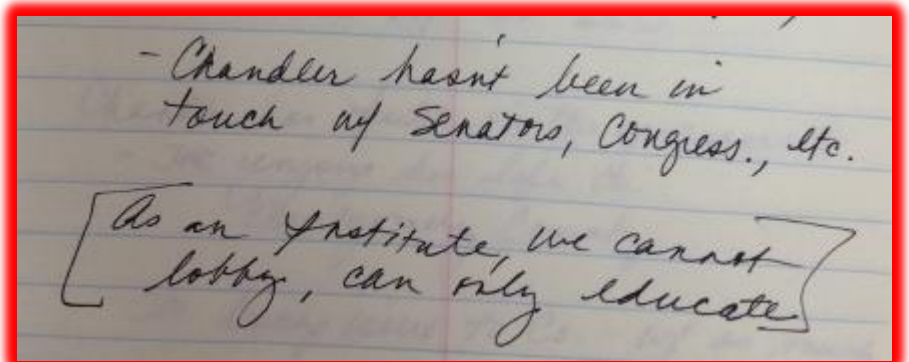 - Chandler hasn't been in
touch w/ Senators, Congress., etc.
[As an Institute, we cannot
lobby, can only educate]